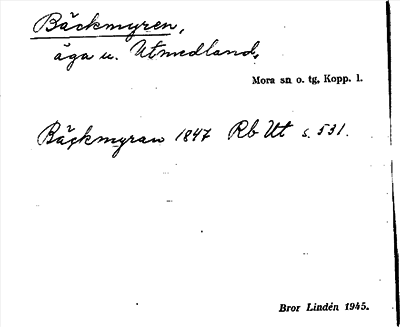 Bäckmyren,
äga u. Utmedland.
Mora sn o. tg, Kopp. l.
Bäckmyran 1847 Rb Ut s. 531.
Bror Lindén 1945.